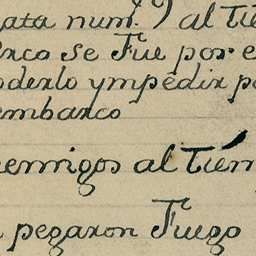 ata num.º) al tie
rco se Fue por e
oderlo y mpedir p
embarco
enemigos al tiem
pegaron Fuego